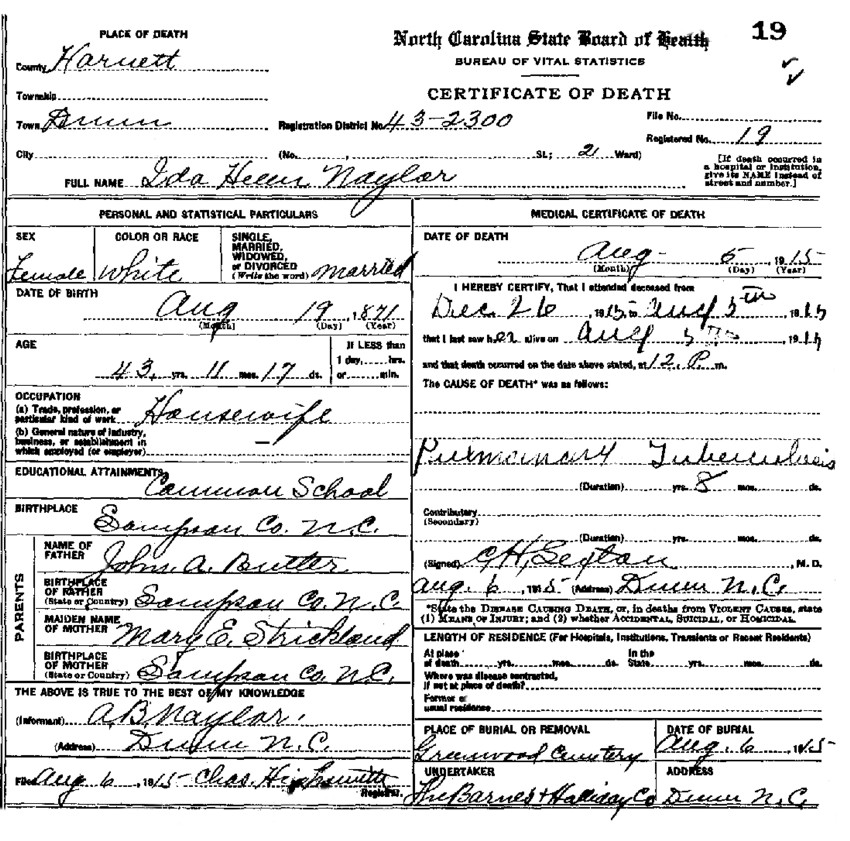 19
PLACE OF DEATH
County Harnett
Township
Town Dunn
City
North Carolina State Board of Health
BUREAU OF VITAL STATISTICS
CERTIFICATE OF DEATH
Registration District No. 43-2300
File No.
Registered No. 19
(No. , St.; 2 Ward)
[If death occurred in
a hospital or institution,
give its NAME instead of
street and number.]
FULL NAME Ida Helen Naylor
PERSONAL AND STATISTICAL PARTICULARS
SEX
Female
COLOR OR RACE
White
SINGLE,
MARRIED,
WIDOWED,
or DIVORCED
(Write the word) Married
DATE OF BIRTH
Aug 19, 1871
(Month) (Day) (Year)
AGE
43 yrs. 11 mos. 17 ds.
If LESS than
1 day, hrs.
or min.
OCCUPATION
(a) Trade, profession, or
particular kind of work Housewife
(b) General nature of industry,
business, or establishment in
which employed (or employer) —
EDUCATIONAL ATTAINMENTS
Common School
BIRTHPLACE
Sampson Co. N.C.
PARENTS
NAME OF
FATHER
John A. Butler
BIRTHPLACE
OF FATHER
(State or Country) Sampson Co. N.C.
MAIDEN NAME
OF MOTHER Mary E. Strickland
BIRTHPLACE
OF MOTHER
(State or Country) Sampson Co. N.C.
THE ABOVE IS TRUE TO THE BEST OF MY KNOWLEDGE
(Informant) A.B. Naylor.
(Address) Dunn N.C.
Filed Aug 6, 1915 Chas. Highsmith
Registrar.
MEDICAL CERTIFICATE OF DEATH
DATE OF DEATH
Aug- 5, 1915
(Month) (Day) (Year)
I HEREBY CERTIFY, That I attended deceased from
Dec. 26, 1915 to Aug 5th 1915
that I last saw her alive on Aug 5th, 1915
and that death occurred on the date above stated, at 12 P. m.
The CAUSE OF DEATH* was as follows:
Pulmonary Tuberculosis
(Duration) yrs. 8 mos. ds.
Contributory
(Secondary)
(Duration) yrs. mos. ds.
(Signed) C H, Sexton, M. D.
Aug. 6, 1915 (Address) Dunn N.C.
*State the DISEASE CAUSING DEATH, or, in deaths from VIOLENT CAUSES, state
(1) MEANS OF INJURY; and (2) whether ACCIDENTAL, SUICIDAL, or HOMICIDAL.
LENGTH OF RESIDENCE (For Hospitals, Institutions, Transients or Recent Residents)
At place
of death yrs. mos. ds.
In the
State yrs. mos. ds.
Where was disease contracted,
if not at place of death?
Former or
usual residence
PLACE OF BURIAL OR REMOVAL
Greenwood Cemetery
DATE OF BURIAL
Aug. 6, 1915
UNDERTAKER
The Barnes & Holliday Co
ADDRESS
Dunn N.C.